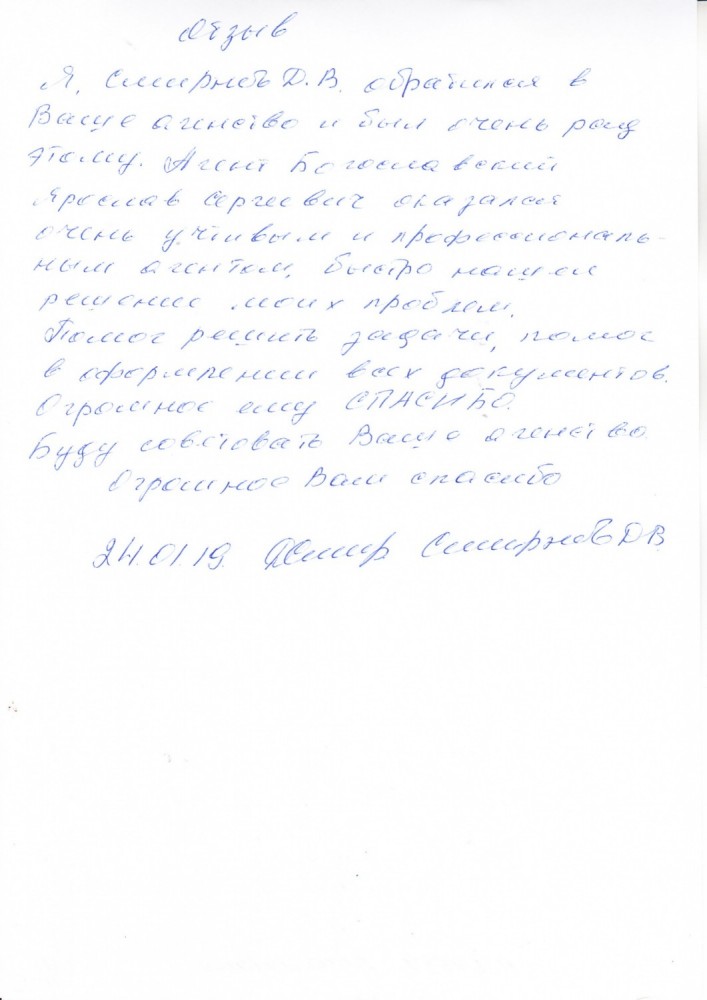 Отзыв
Я, Смирнов Д.В. обратился в
Ваше агенство и был очень рад
этому. Агент Богославский
Ярослав Сергеевич оказался
очень учтивым и профессиональ-
ным агентом, быстро нашел
решение моих проблем.
Помог решить задачи, помог
в оформлении всех документов.
Огромное ему СПАСИБО.
Буду советовать Ваше агенство.
Огромное Вам спасибо
24.01.19. Смирнов Д.В.